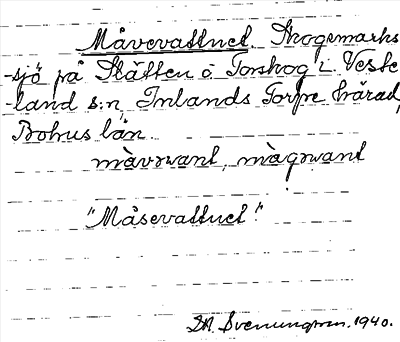 Måvevattnet. Skogsmarks
-sjö på Slätten å Torskog i Väste
-land s:n, Inlands Torpe härad,
Bohus län.
"Måsevattnet."
Svenungsson. 1940.